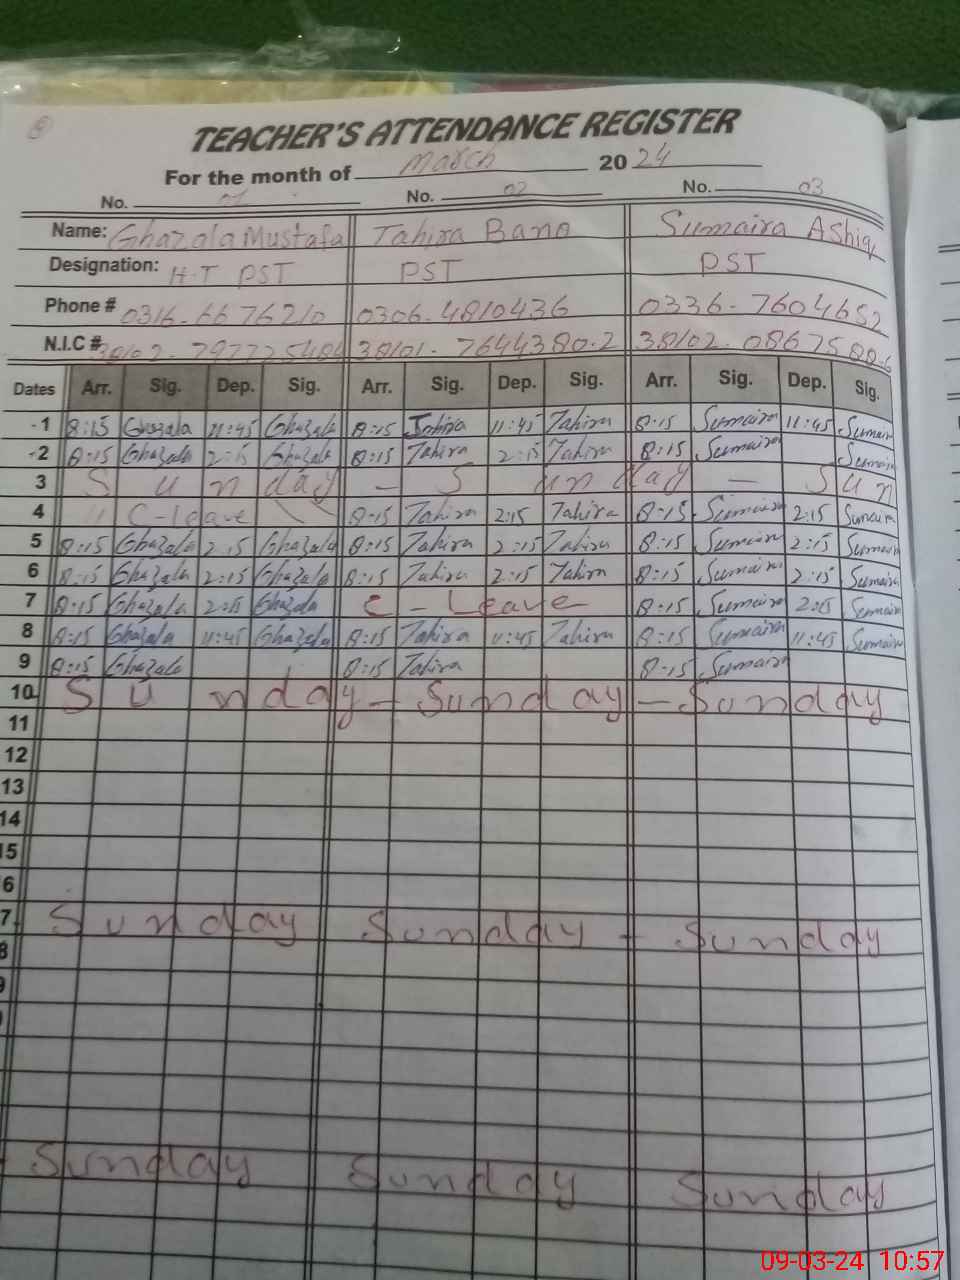 TEACHER'S ATTENDANCE REGISTER
For the month of March 20 24
No. 01 No. 02 No. 03
Name: Ghazala Mustafa Tahira Bano Sumaira Ashiq
Designation: H-T PST PST PST
Phone # 0316-6676210 0306-4810436 0336-7604652
N.I.C # 38101-7644380-2
Dates Arr. Sig. Dep. Sig. Arr. Sig. Dep. Sig. Arr. Sig. Dep. Sig.
1 8:15 Ghazala 11:45 Ghazala 8:15 Tahira 11:45 Tahira 8:15 Sumaira 11:45 Sumaira
2 8:15 Ghazala 2:15 Ghazala 8:15 Tahira 2:15 Tahira 8:15 Sumaira Sumaira
3 Sunday - Sunday - Sun
4 C-leave 8:15 Tahira 2:15 Tahira 8:15 Sumaira 2:15 Sumaira
5 8:15 Ghazala 2:15 Ghazala 8:15 Tahira 2:15 Tahira 8:15 Sumaira 2:15 Sumaira
6 8:15 Ghazala 2:15 Ghazala 8:15 Tahira 2:15 Tahira 8:15 Sumaira 2:15 Sumaira
7 8:15 Ghazala 2:15 Ghazala C-Leave 8:15 Sumaira 2:15 Sumaira
8 8:15 Ghazala 11:45 Ghazala 8:15 Tahira 11:45 Tahira 8:15 Sumaira 11:45 Sumaira
9 8:15 Ghazala 8:15 Tahira 8:15 Sumaira
10 Sunday - Sunday - Sunday
11
12
13
14
15
6
7 Sunday Sunday - Sunday
8
9
Sunday Sunday Sunday
09-03-24 10:57